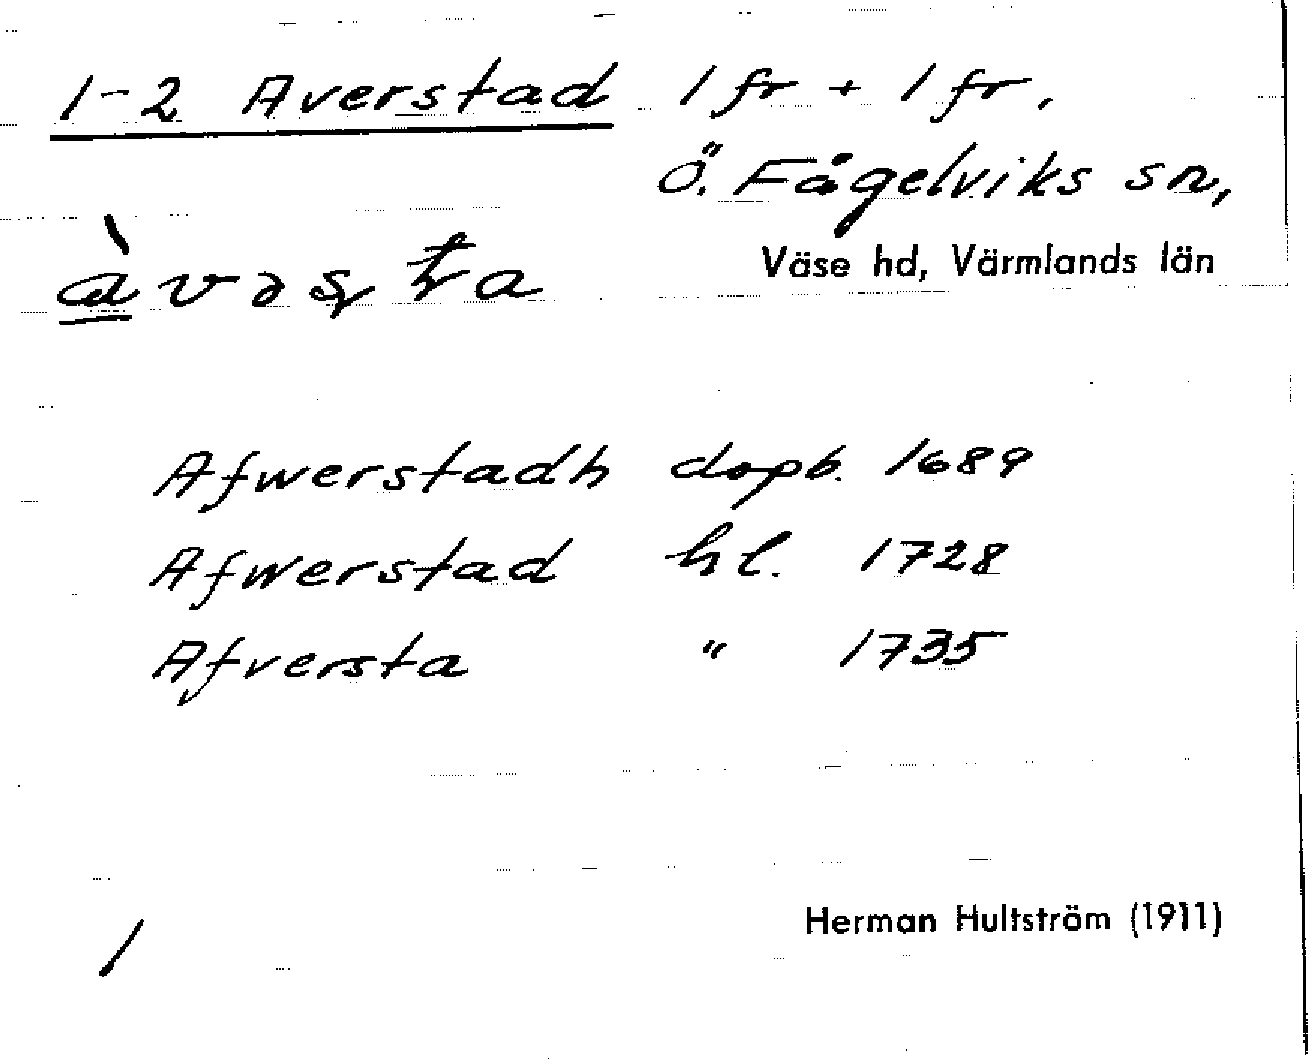 1-2 Averstad 1 fr + 1 fr.
Ö. Fågelviks sn,
Väse hd, Värmlands län
Afwerstadh dopb. 1689
Afwerstad hl. 1728
Afversta " 1735
Herman Hultström (1911)
1